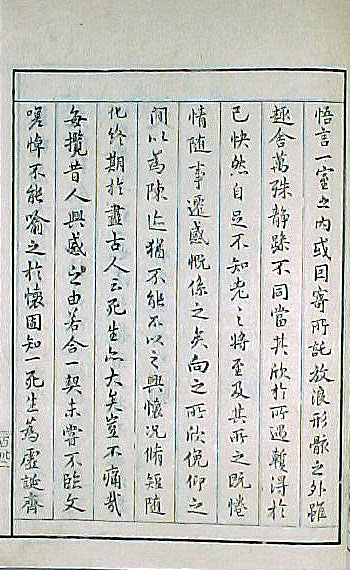 悟言一室之内或因寄所託放浪形骸之外雖
趣舍萬殊静躁不同當其欣於所遇暫得於
己快然自足不知老之將至及其所之既惓
情随事遷感慨係之矣向之所欣俛仰之
間以為陳迹猶不能不以之興懷況脩短随
化終期於盡古人云死生亦大矣豈不痛哉
每攬昔人興感之由若合一契未嘗不臨文
嗟悼不能喻之於懷固知一死生為虛誕齊